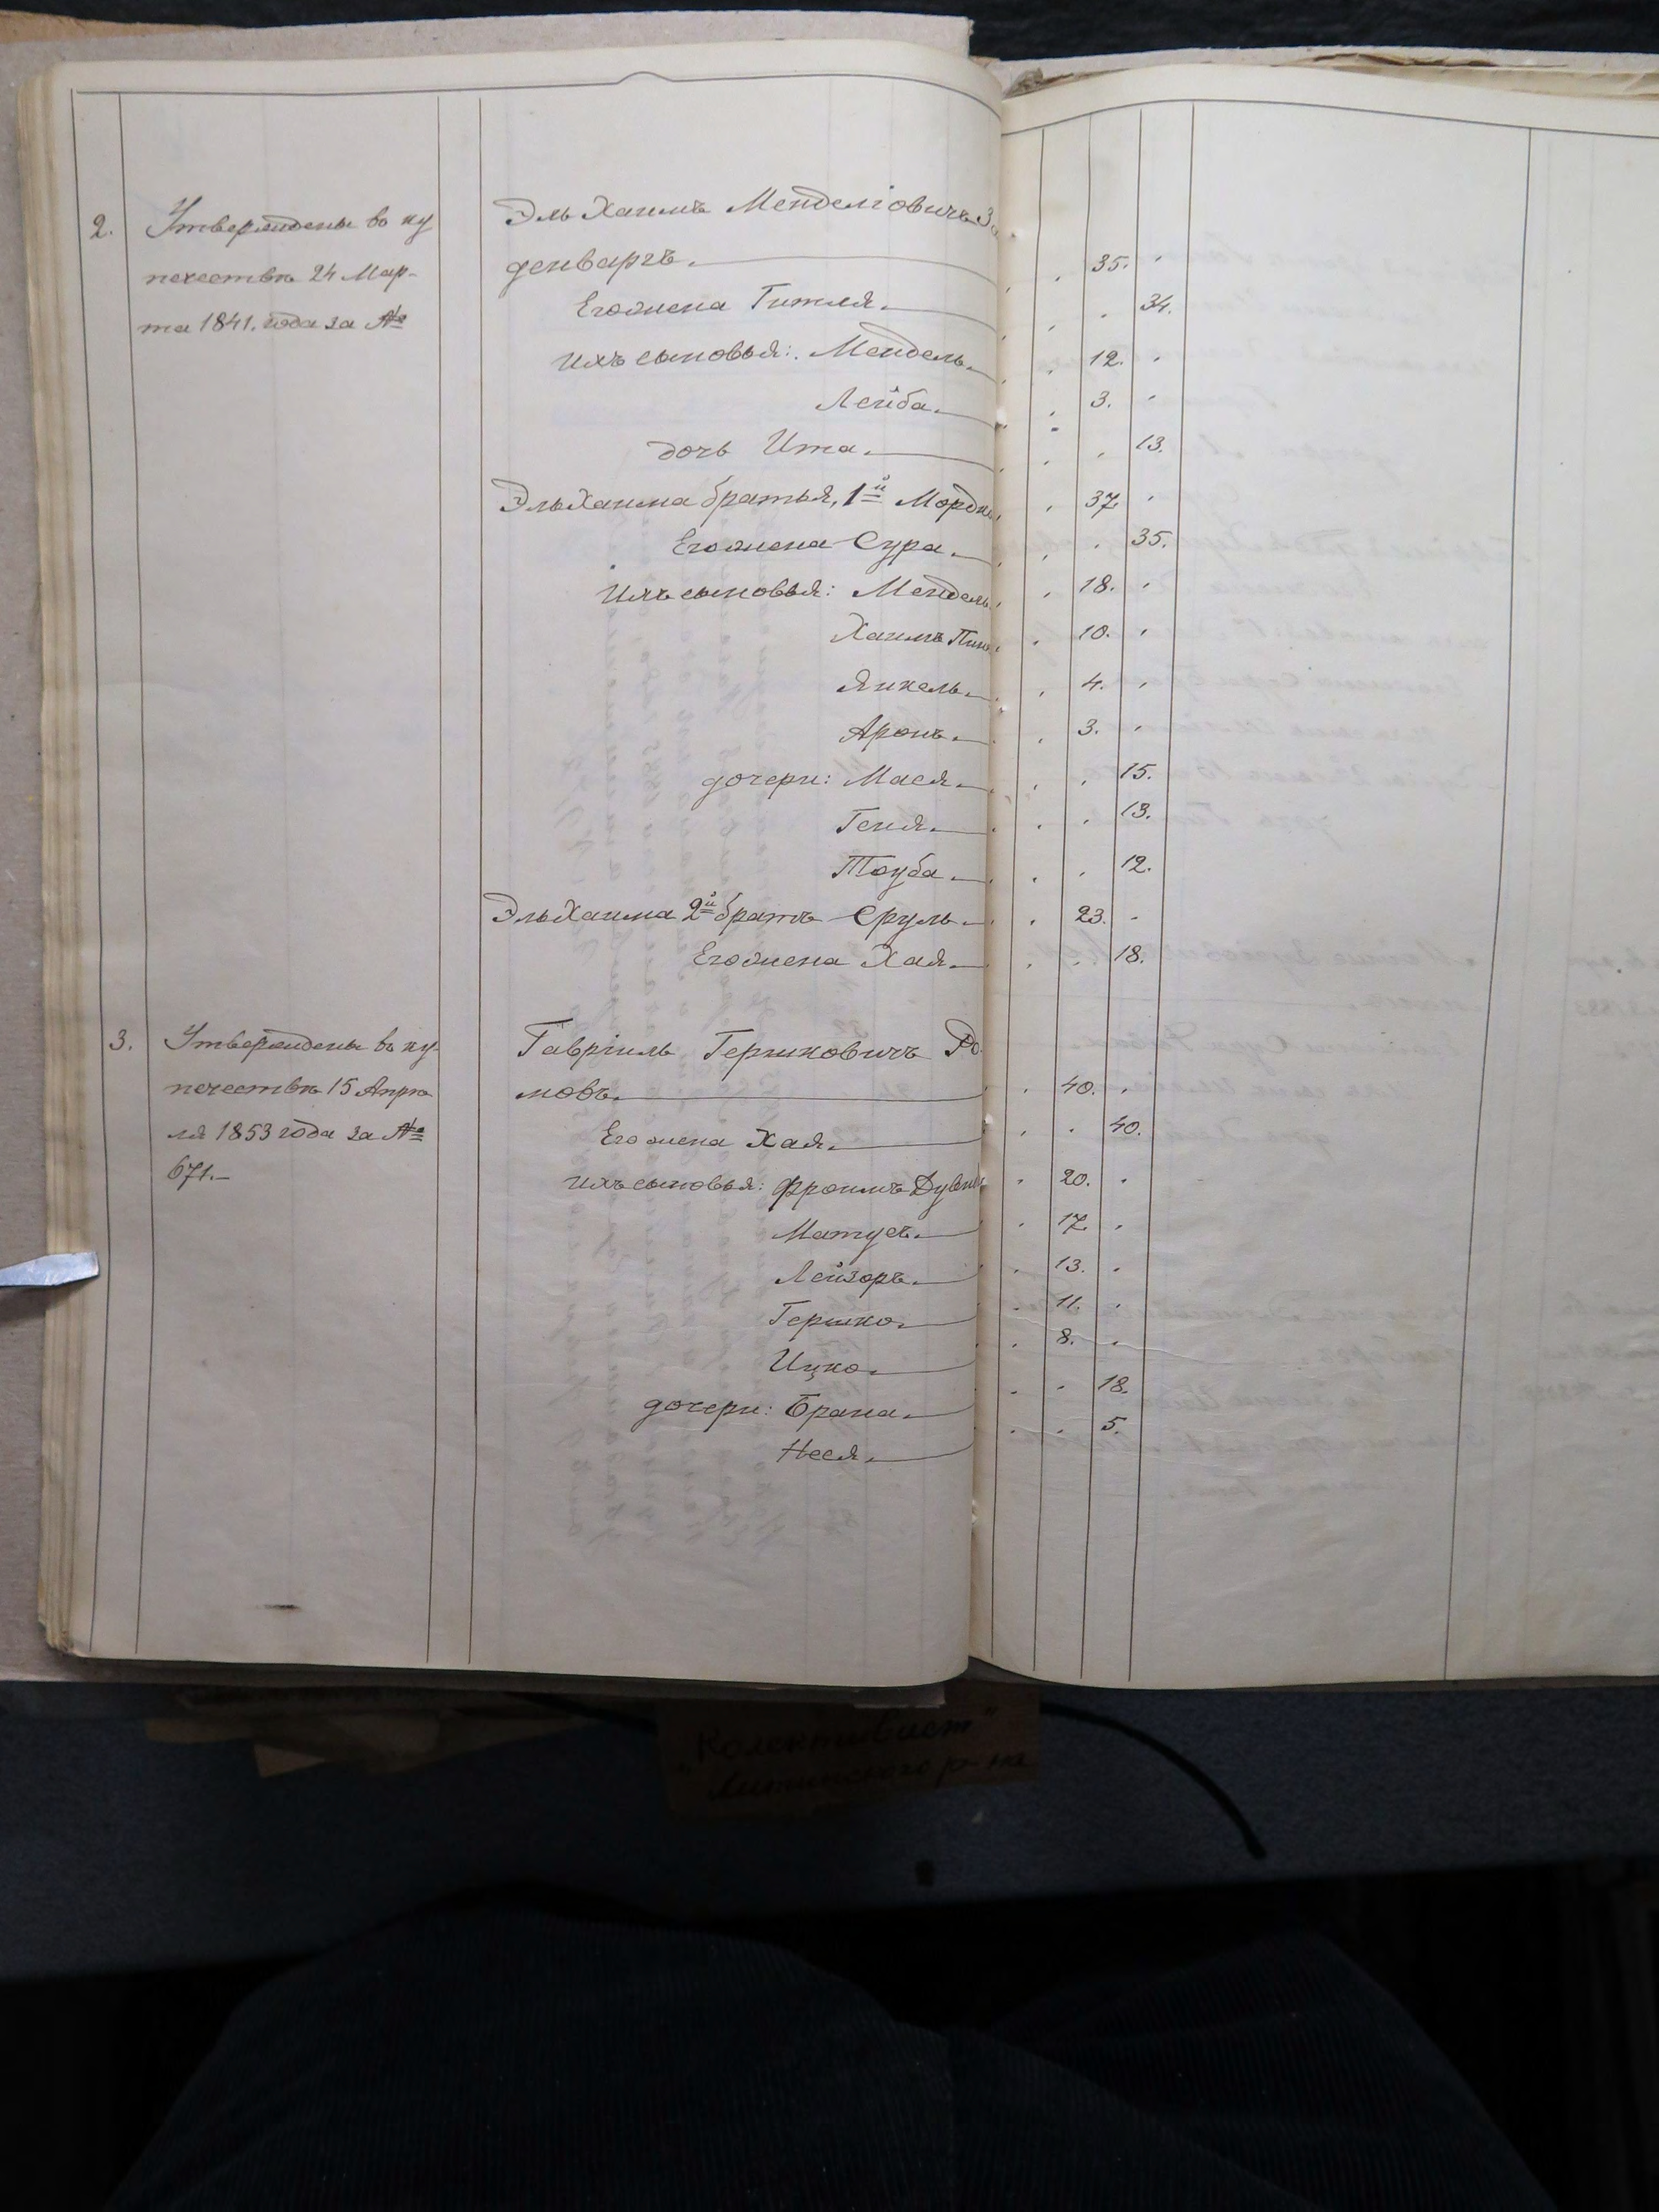 2. Утверждены въ ку
печествѣ 24 Мар-
та 1841. года за №
Эль Хаимъ Менделіовичъ За
денваргъ. 35.
Его жена Гитля. 34.
ихъ сыновья: Мендель. 12.
Лейба. 3.
дочь Ита. 13.
Эль Хаима братья, 1й Мордко 37.
Его жена Сура. 35.
ихъ сыновья: Мендель 18.
Хаимъ 10.
Янкель. 4.
Аронъ. 3.
дочери: Мася. 15.
Геня. 13.
Тоуба. 12.
Эль Хаима 2й братъ Сруль. 23.
Его жена Хая. 18.
3. Утверждены въ ку-
печествѣ 15 Апрѣ
ля 1853 года за №
671.—
Гавріиль Гершковичъ Ро
новъ. 40.
Его жена Хая. 40.
ихъ сыновья: Фроимъ 20.
Матусъ. 17.
Лейзоръ. 13.
Гершко. 11.
Ицко. 8.
дочери: Брана. 18.
Неся. 5.
"Колективист"
Литинского р-на